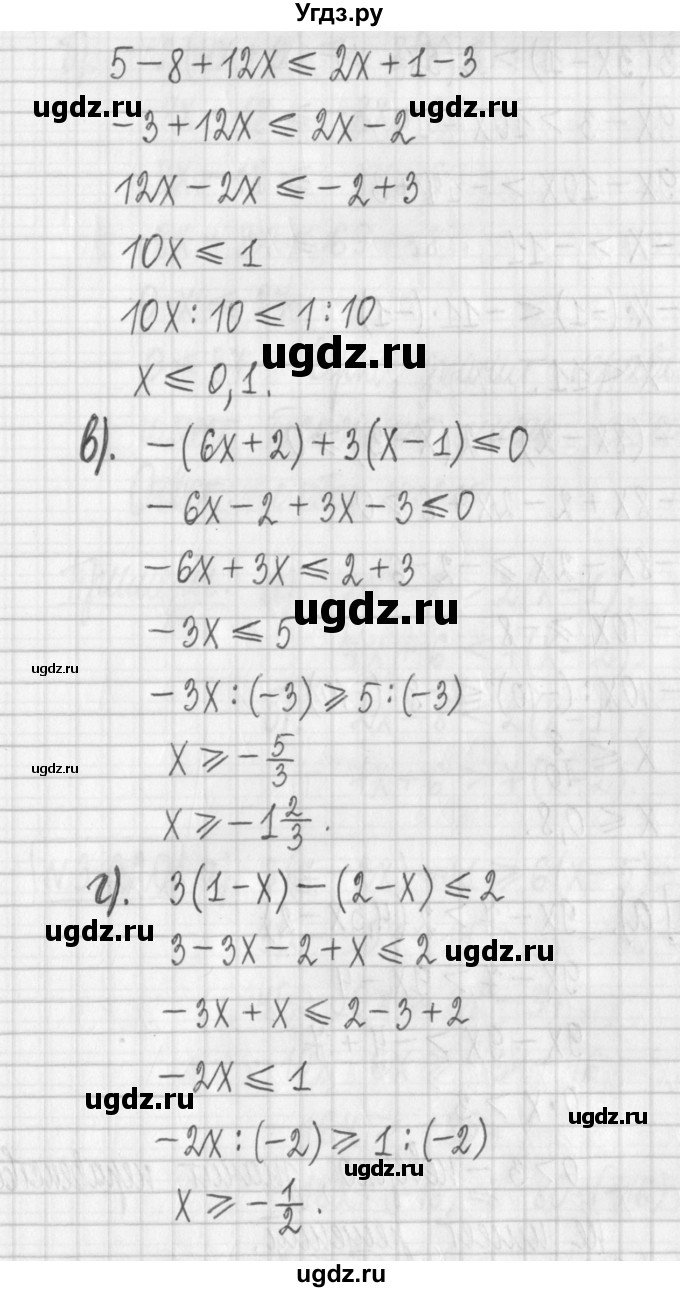 Угдз.ру
5-8+12x ⩽ 2x+1-3
ugdz.ru ugdz.ru
-3+12x ⩽ 2x-2
12x-2x ⩽ -2+3
10x ⩽ 1
10x:10 ⩽ 1:10
ugdz.ru
x ⩽ 0,1.
в). -(6x+2)+3(x-1) ⩽ 0
-6x-2+3x-3 ⩽ 0
-6x+3x ⩽ 2+3
ugdz.ru
-3x ⩽ 5
ugdz.ru
-3x:(-3) ⩾ 5:(-3)
x ⩾ -5/3
ugdz.ru
x ⩾ -1 2/3.
г). 3(1-x)-(2-x) ⩽ 2
ugdz.ru
3-3x-2+x ⩽ 2
ugdz.ru
-3x+x ⩽ 2-3+2
-2x ⩽ 1
ugdz.ru
ugdz.ru
-2x:(-2) ⩾ 1:(-2)
ugdz.ru
x ⩾ -1/2.
ugdz.ru